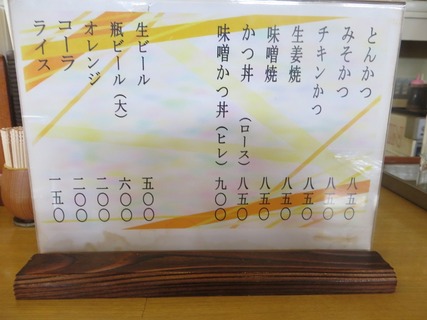 とんかつ 八五〇
みそかつ 八五〇
チキンかつ 八五〇
生姜焼 八五〇
味噌焼 八五〇
かつ丼（ロース） 八五〇
味噌かつ丼（ヒレ） 九〇〇
生ビール 五〇〇
瓶ビール（大） 六〇〇
オレンジ 二〇〇
コーラ 二〇〇
ライス 一五〇